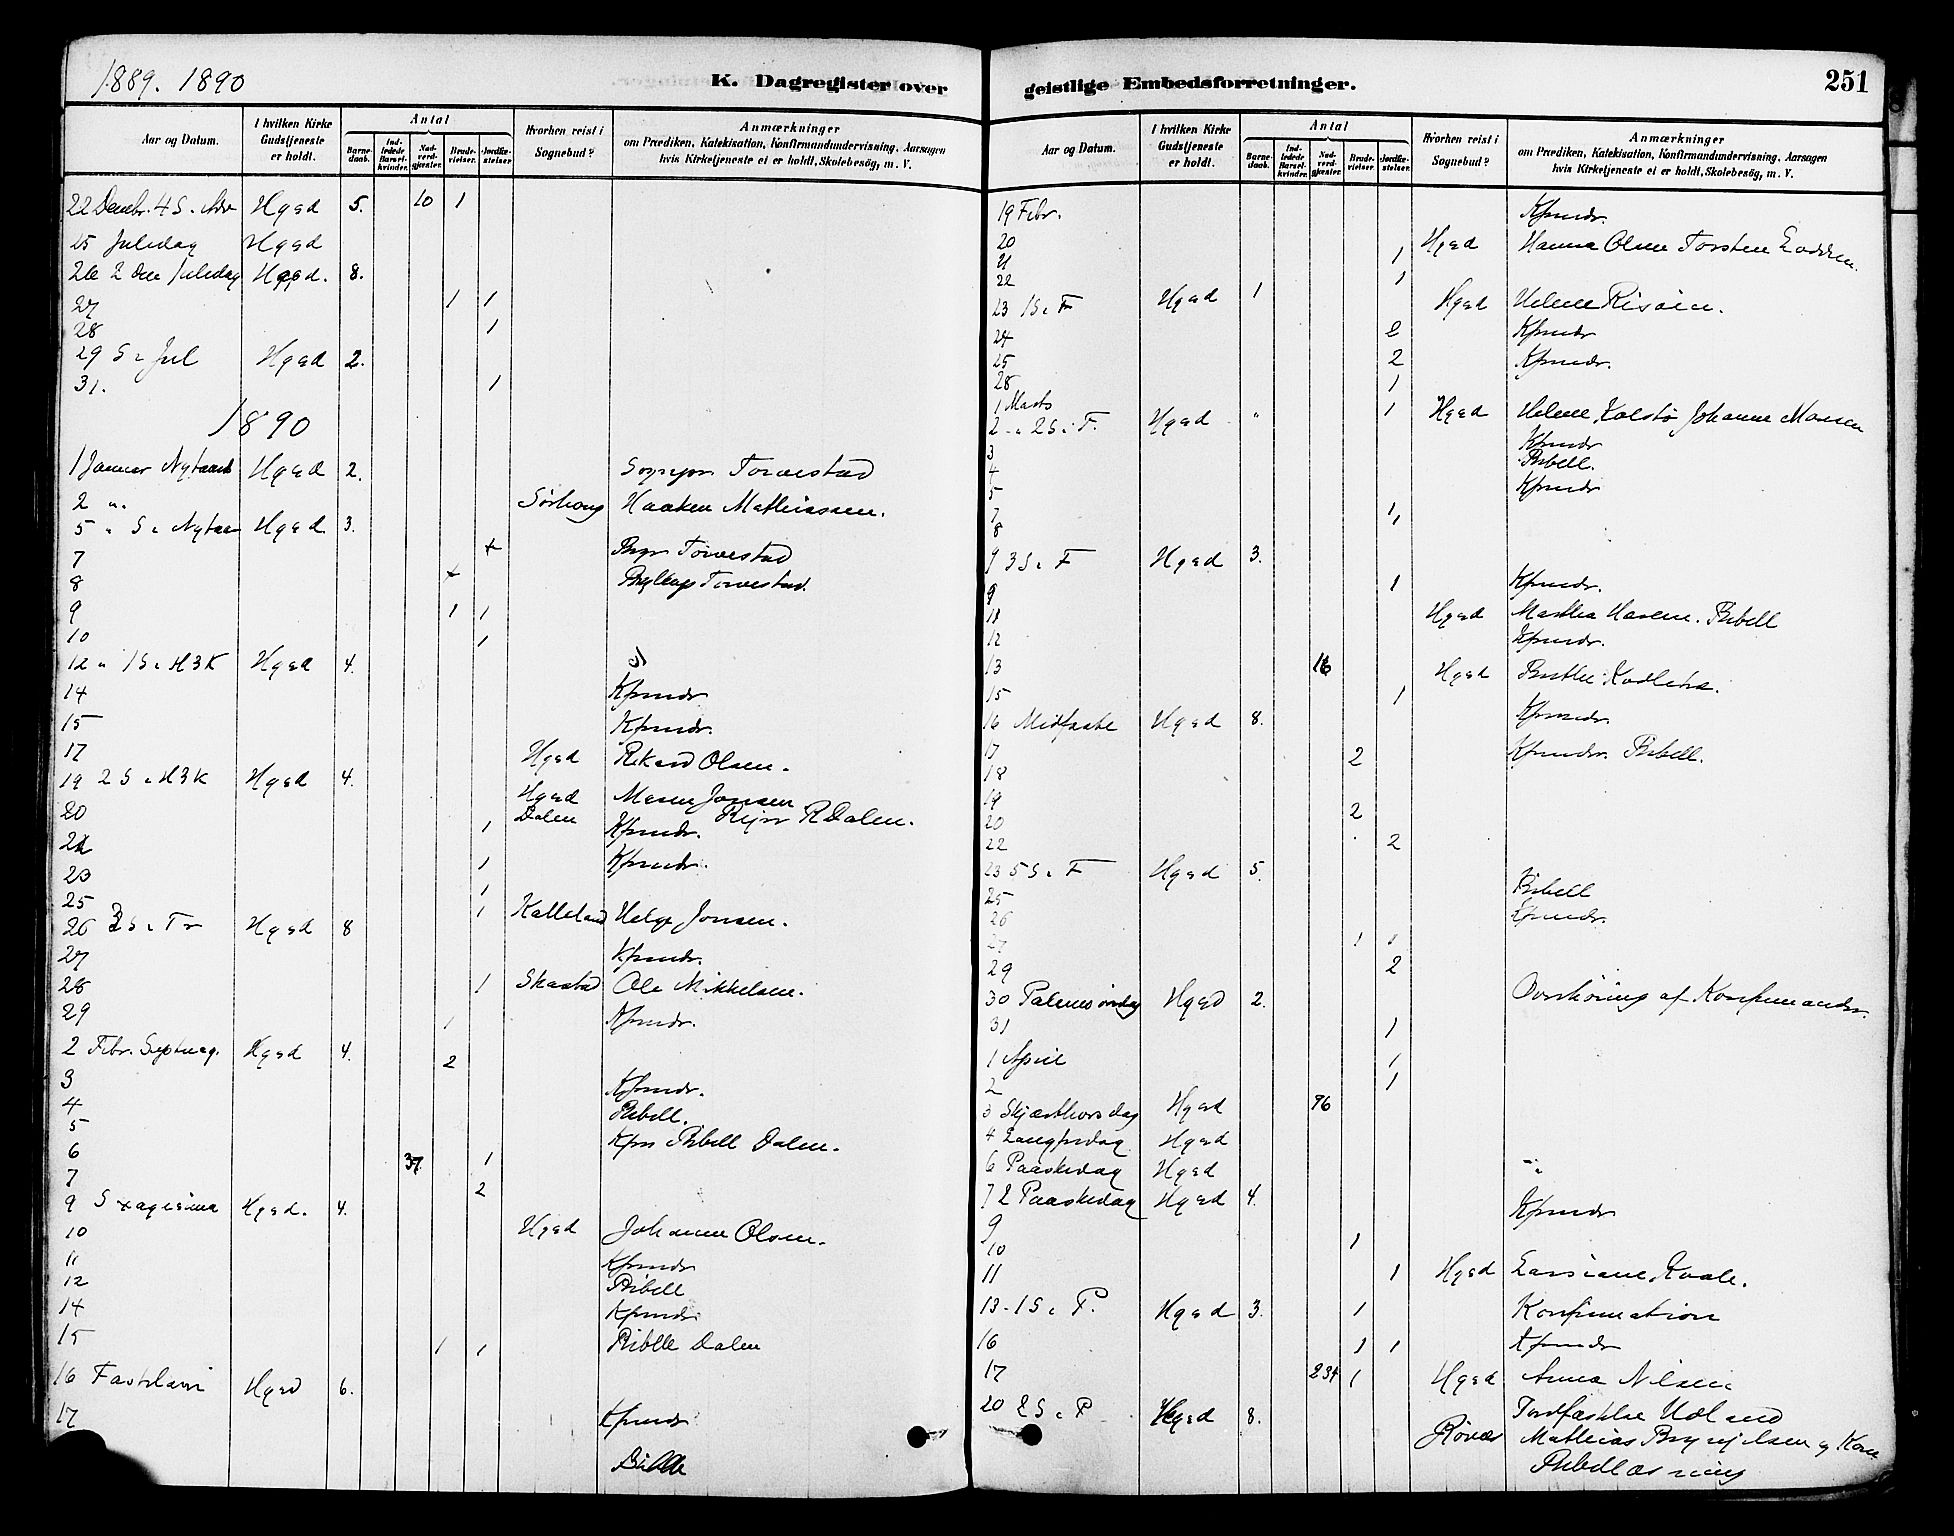 1889. 1890
K. Dagregister over
Aar og Datum.
I hvilken Kirke Gudstjeneste er holdt.
Antal
Barnedaab.
Indledede Barselkvinder.
Nadverdgjester.
Brudevielser.
Jordfæstelser
Hvorhen reist i Sognebud?
Anmærkninger
om Prædiken, Katekisation, Konfirmandundervisning, Aarsagen
hvis Kirketjeneste ei er holdt, Skolebesög, m. V.
22 Decembr. 4 S. Adv Hgsd 5. 10 1
25 Juledag Hgsd
26 2den Juledag Hgsd. 8.
27 1 1
28 1
29 S. Jul Hgsd 2.
31. 1
1890
1 Januar Nytaarsd Hgsd 2. Torvestad
2 " Sørhoug Haaken Mathiassen.
5 " S. Nytaar Hgsd 3.
7 + Torvestad
8 + Torvestad.
9 1 1
10 1
12 " 1 S. H3K Hgsd 4.
14 Kfmdr
15 Kfmdr.
17 Hgsd Rikard Olsen.
19 2 S. H3K Hgsd 4. Hgsd Jonsen
20 1 Dalen Kfmdr. R Dalen.
22 1 Kfmdr.
23 1
25 1 Kalleland Helge Jonsen.
26 3 S. Tr Hgsd 8
27 Kfmdr.
28 1 Skaatad Ole Mikkelsen.
29 1 Kfmdr.
2 Febr. Septuag. Hgsd 4. 2
3 Kfmdr.
4 Bibell.
5 Bibell Dalen.
6 37 1
7 2
9 Sexagesima Hgsd. 4.
10 Hgsd Johanne Olsen.
11 Kfmdr
12 Bibell
14 Kfmdr
15 1 1 Dalen
16 Fastelavn Hgsd 6.
17 Kfmdr
geistlige Embedsforretninger.
251
Aar og Datum.
I hvilken Kirke Gudstjeneste er holdt.
Antal
Barnedaab.
Indledede Barselkvinder.
Nadverdgjester.
Brudevielser.
Jordfæstelser.
Hvorhen reist i Sognebud?
Anmærkninger
om Prædiken, Katekisation, Konfirmandundervisning, Aarsagen
hvis Kirketjeneste ei er holdt, Skolebesög, m. V.
19 Febr. Kfmdr.
20 Hgsd Hanna Olsen Torsten
21 1
22 1
23 1 S. F Hgsd 1 Hgsd Helene Risøen.
24 2 Kfmdr
25 2 Kfmdr.
28 1
1 Marts 1 Hgsd Helene Kolstø Johanne Monsen
2 " 2 S. F. Hgsd " Kfmdr
3 Bibell.
4
5 Kfmdr
7 1
8 1
9 3 S. F Hgsd 3.
9 1 Kfmdr.
11 Hgsd Martha Hansen. Bibell
12 Kfmdr.
13 16 Hgsd
15 1
16 Midfaste Hgsd 8. Kfmdr.
17 2 Kfmdr. Bibell.
18
19 2
20
22 2
23 5 S. F Hgsd 5.
25 Bibell
26 Kfmdr.
27 1 1
29 2
30 Palmesøndag Hgsd 2. Overhøring af Konfirmander.
31 1
1 April 1
2 1
3 Skjærthorsdag Hgsd 96
4 Langfredag Hgsd
6 Paaskedag Hgsd
7 2 Paaskedag Hgsd 4.
9 Kfmdr
10 1
11 1 Hgsd Larsiane Kvale.
13 - 1 S. P. Hgsd 3. 1 Konfirmation
16 1 1 Kfmdr
17 234 1 Hgsd Anna Nilsen
20 2 S. P Hgsd 8. Jordfæstelse Udland
Røvær Mathias og Kone
Bibellæsning